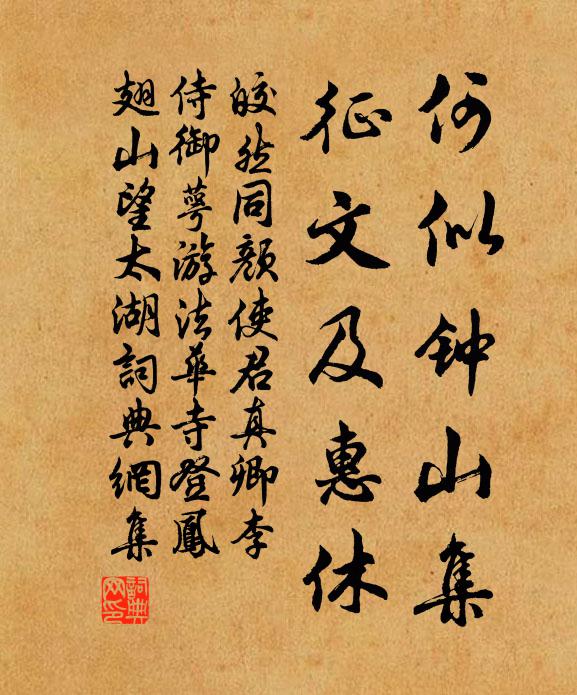 何似钟山集
征文及惠休
皎然同颜使君真卿李
侍御萼游法华寺登鳳
翅山望太湖詞典網集
詞典網印